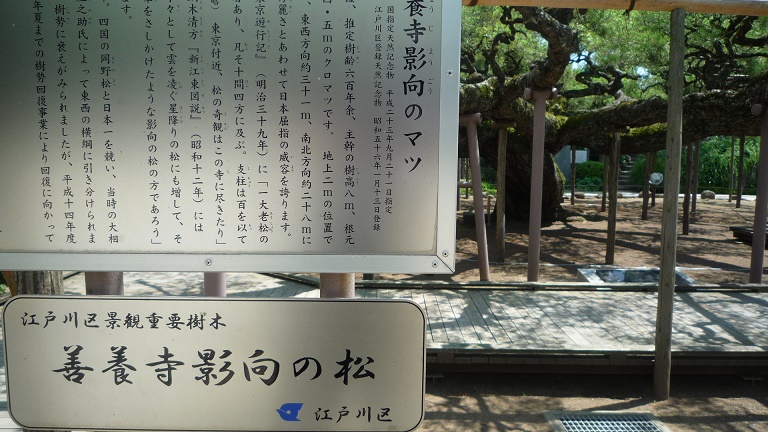 ようごう
養寺影向のマツ
国指定天然記念物 平成二十三年九月二十一日指定
江戸川区登録天然記念物 昭和五十六年一月十三日登録
は、推定樹齢六百年余、主幹の樹高八m、根元
四・五mのクロマツです。地上二mの位置で
、東西方向約三十一m、南北方向約二十八mに
麗さとあわせて日本屈指の威容を誇ります。
京遊行記』(明治三十九年)に「一大老松の
あり、凡そ十間四方に及ぶ。支柱は百を以て
)東京付近、松の奇観はこの寺に尽きたり」
木清方『新江東図説』(昭和十二年)には
々として雲を凌ぐ星降りの松にも増して、そ
をさしかけたような影向の松の方であろう」
ます。
、四国の岡野松と日本一を競い、当時の大相
之助氏によって東西の横綱に引き分けられま
樹勢に衰えがみられましたが、平成十四年度
年夏までの樹勢回復事業により回復に向かって
江戸川区景観重要樹木
善養寺影向の松
江戸川区